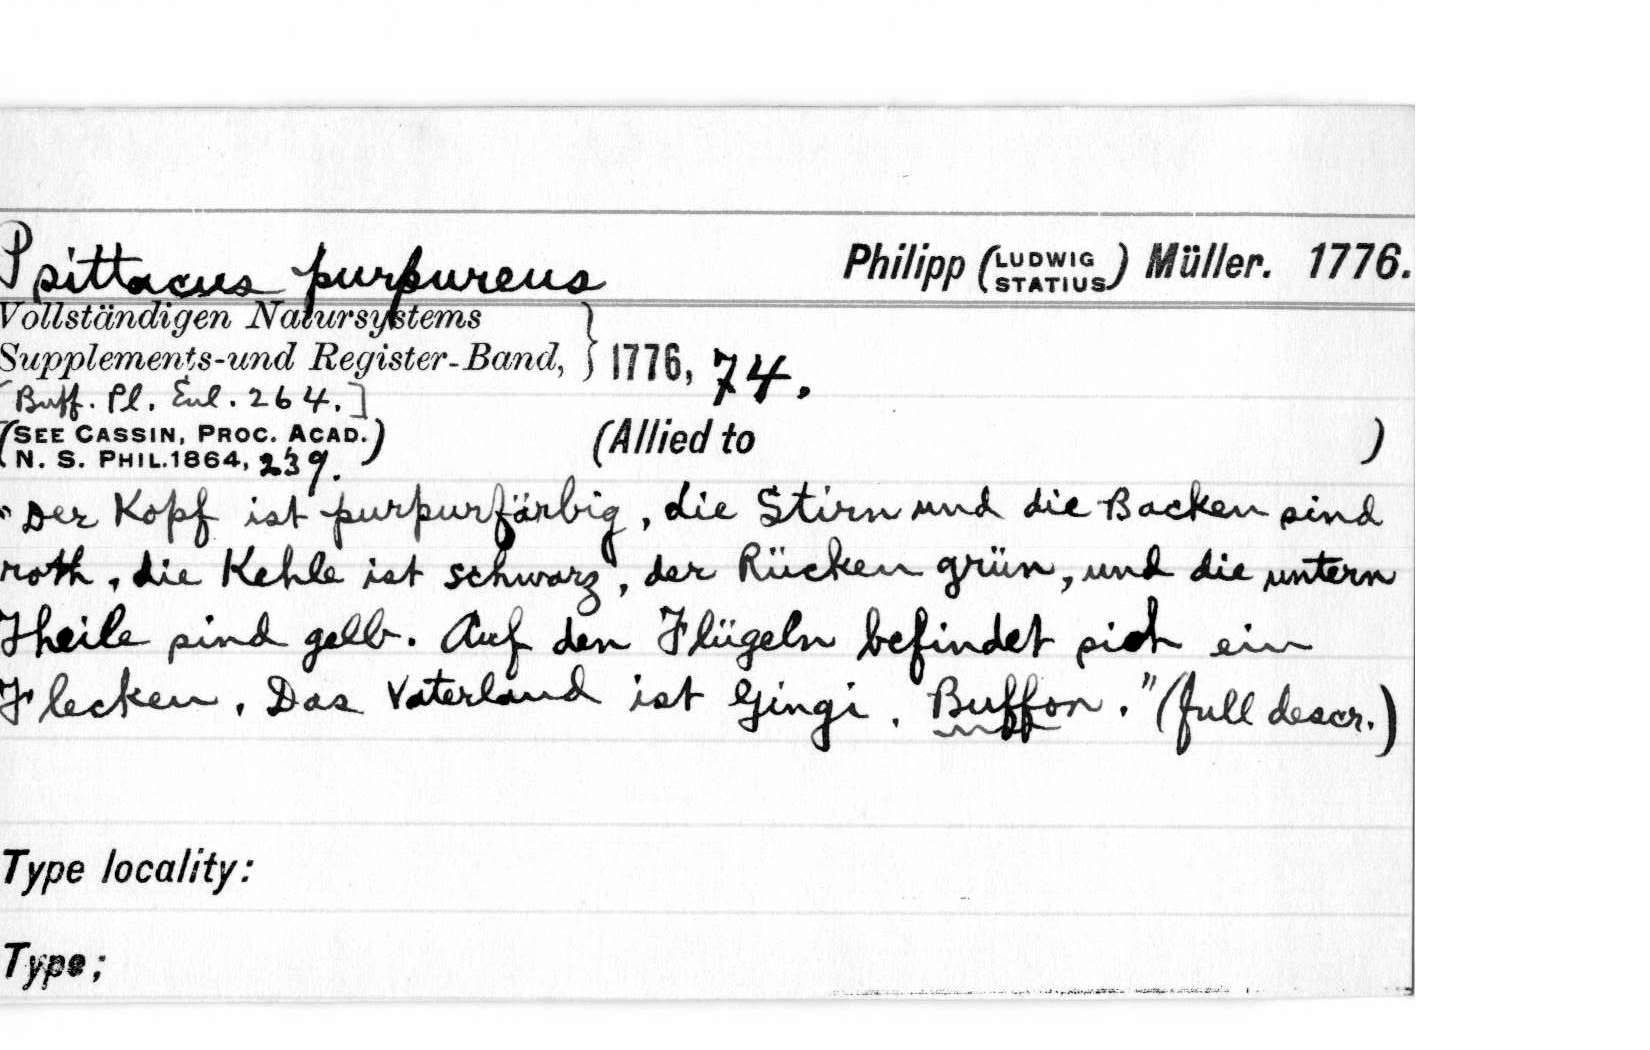 Psittacus purpureus Philipp (LUDWIG STATIUS) Müller. 1776.
Vollständigen Natursystems
Supplements-und Register-Band, } 1776, 74.
[Buff. Pl. Enl. 264.]
(SEE CASSIN, PROC. ACAD.
N. S. PHIL. 1864, 239.) (Allied to )
"Der Kopf ist purpurfärbig, die Stirn und die Backen sind
roth, die Kehle ist schwarz, der Rücken grün, und die untern
Theile sind gelb. Auf den Flügeln befindet sich ein
Flecken. Das Vaterland ist Gingi. Buffon." (full descr.)
Type locality:
Type;